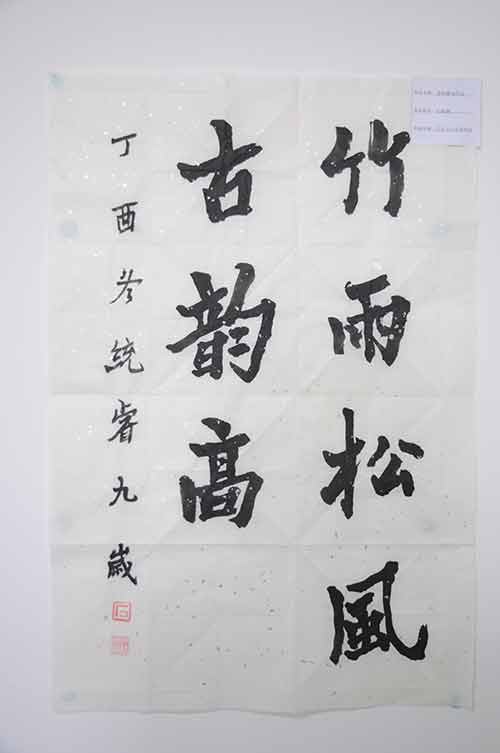 竹雨松風
古韵高
丁酉冬統睿九歲